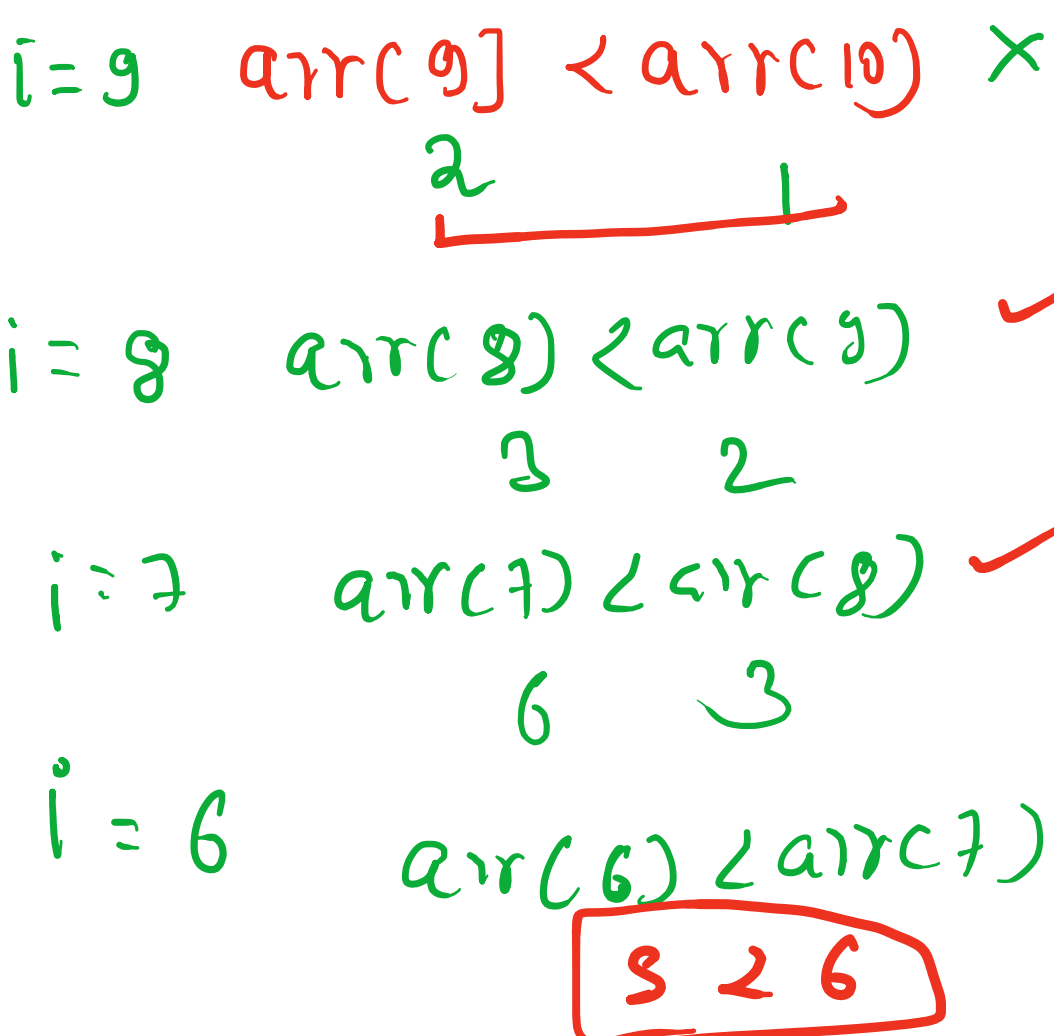 i = 9 arr(9] < arr(10) ×
2 1
i = 8 arr(8) < arr(9) ✓
3 2
i = 7 arr(7) < arr(8) ✓
6 3
i = 6 arr(6) < arr(7)
3 < 6